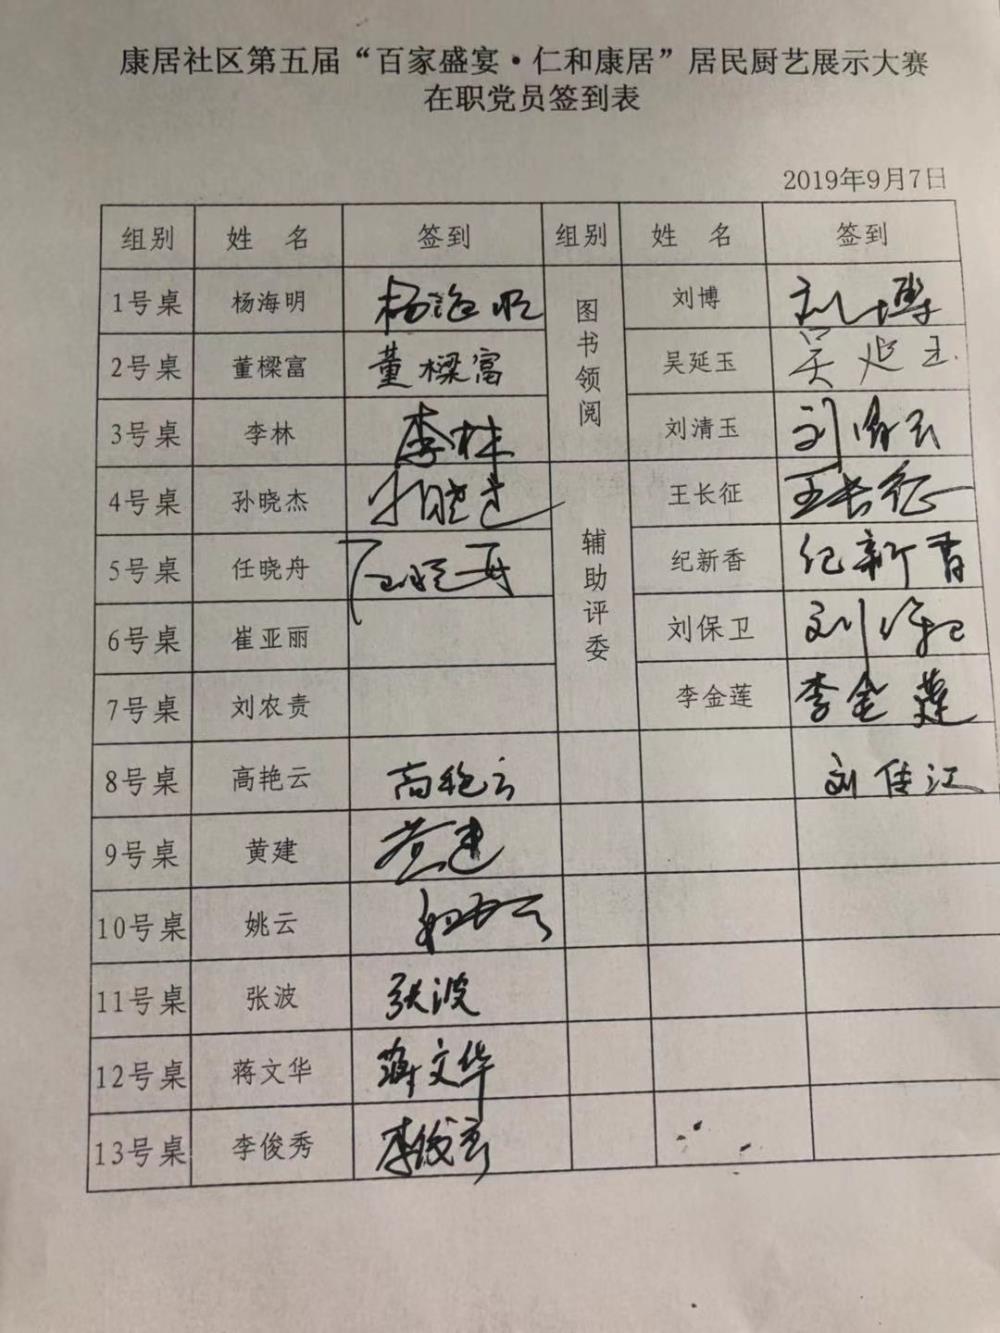 康居社区第五届“百家盛宴·仁和康居”居民厨艺展示大赛
在职党员签到表
2019年9月7日
组别 姓 名 签到 组别 姓 名 签到
1号桌 杨海明 杨海明 图书领阅 刘博 刘博
2号桌 董樑富 董樑富 吴延玉 吴延玉
3号桌 李林 李林 刘清玉 刘清玉
4号桌 孙晓杰 孙晓杰 辅助评委 王长征 王长征
5号桌 任晓舟 任晓舟 纪新香 纪新香
6号桌 崔亚丽 刘保卫 刘保卫
7号桌 刘农责 李金莲 李金莲
8号桌 高艳云 高艳云 刘佳江
9号桌 黄建 黄建
10号桌 姚云
11号桌 张波 张波
12号桌 蒋文华 蒋文华
13号桌 李俊秀 李俊秀